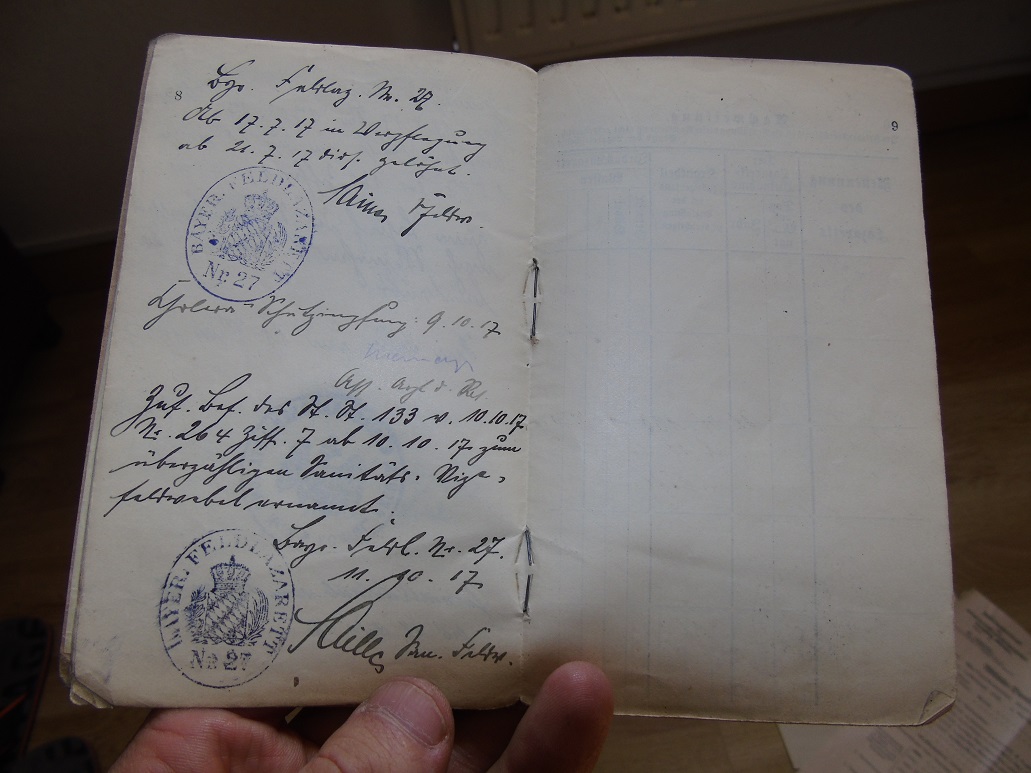 8
Bayr. Feldlaz. Nr. 27.
Ab 17.7.17 in Verpflegung
ab 21.7.17 dies. gelöhnt.
Feldw.
BAYER. FELDLAZARETT
Nr. 27
Cholera-Schutzimpfung: 9.10.17
Ass. Arzt d. Res.
Zuf. Bef. des St. St. 133 v. 10.10.17.
Nr. 264 Ziff. 7 ab 10.10.17. zum
überzähligen Sanitäts-Vize-
feldwebel ernannt.
Bayr. Feldl. Nr. 27.
11.10.17
BAYER. FELDLAZARETT
Nr. 27
San. Feldw.
9